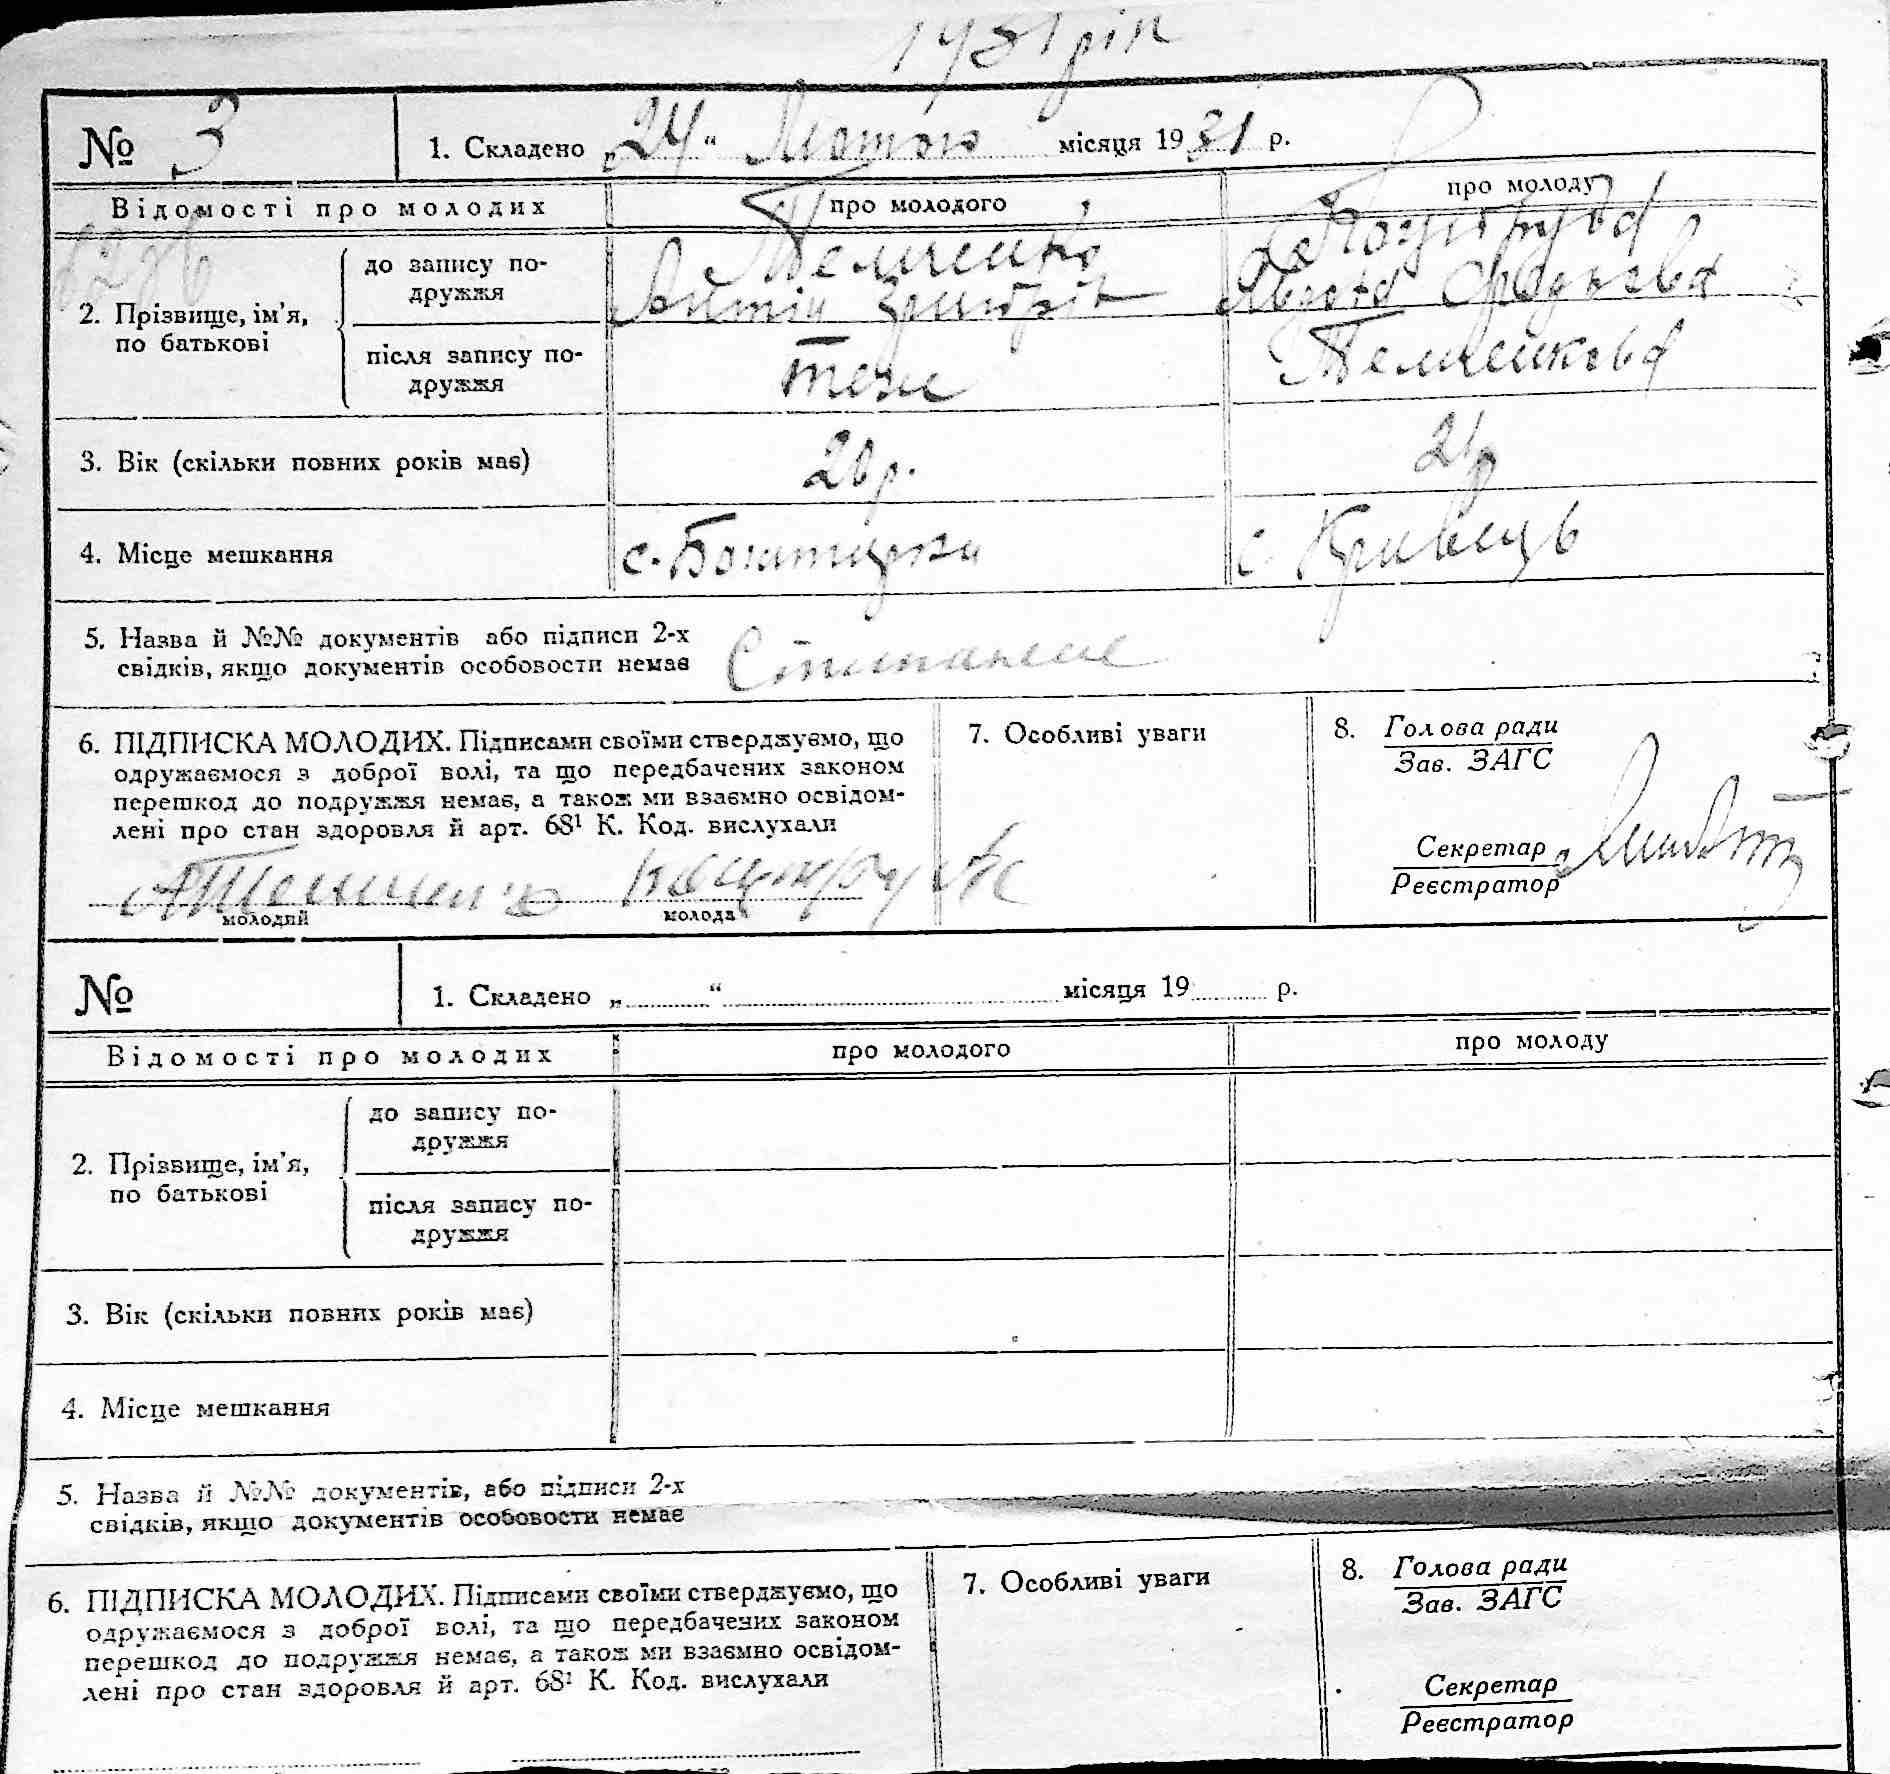 1931 рік
№ 3
1. Складено „24“ Лютого місяця 1931 р.
Відомості про молодих про молодого про молоду
2. Прізвище, ім’я, по батькові
до запису по-
дружжя
Темченко
Антін
після запису по-
дружжя
теж
Темченкова
3. Вік (скільки повних років має) 26 р. 21 р
4. Місце мешкання с. с Кривець
5. Назва й №№ документів або підписи 2-х
свідків, якщо документів особовости немає
6. ПІДПИСКА МОЛОДИХ. Підписами своїми стверджуємо, що
одружаємося з доброї волі, та що передбачених законом
перешкод до подружжя немає, а також ми взаємно освідом-
лені про стан здоровля й арт. 68¹ К. Код. вислухали
молодий молода
7. Особливі уваги
8. Голова ради
Зав. ЗАГС
Секретар
Реєстратор
№
1. Складено „ “ місяця 19 р.
Відомості про молодих про молодого про молоду
2. Прізвище, ім’я,
по батькові
до запису по-
дружжя
після запису по-
дружжя
3. Вік (скільки повних років має)
4. Місце мешкання
5. Назва й №№ документів, або підписи 2-х
свідків, якщо документів особовости немає
6. ПІДПИСКА МОЛОДИХ. Підписами своїми стверджуємо, що
одружаємося з доброї волі, та що передбачених законом
перешкод до подружжя немає, а також ми взаємно освідом-
лені про стан здоровля й арт. 68¹ К. Код. вислухали
7. Особливі уваги
8. Голова ради
Зав. ЗАГС
Секретар
Реєстратор